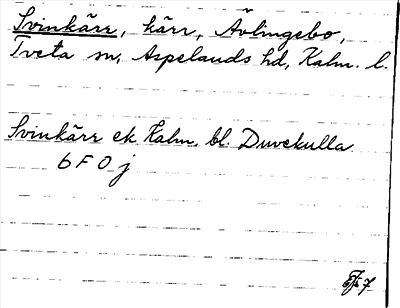 Svinkärr, kärr,Ävlingebo,
Tveta sn, Aspelands hd, Kalm. l.
Svinkärr ek. Kalm. bl. Duvekulla
6 F 0 j